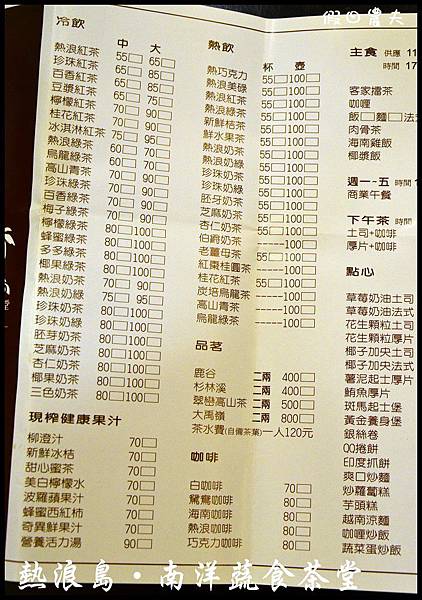 假日農夫
冷飲
中 大
熱浪紅茶 55□ 65□
珍珠紅茶 65□ 85□
百香紅茶 65□ 85□
豆漿紅茶 65□ 75□
檸檬紅茶 70□ 90□
桂花紅茶 70□ 90□
冰淇淋紅茶 75□ 95□
熱浪綠茶 60□ 70□
烏龍綠茶 60□ 70□
高山青茶 70□ 90□
珍珠綠茶 70□ 90□
百香綠茶 70□ 90□
梅子綠茶 70□ 90□
檸檬綠茶 80□100□
蜂蜜綠茶 80□100□
多多綠茶 80□100□
椰果綠茶 80□100□
熱浪奶茶 70□ 90□
熱浪奶綠 75□ 95□
珍珠奶茶 80□100□
珍珠奶綠 80□100□
胚芽奶茶 80□100□
芝麻奶茶 80□100□
杏仁奶茶 80□100□
椰果奶茶 80□100□
三色奶茶 80□100□
現榨健康果汁
柳澄汁 70□
新鮮冰桔 70□
甜心蜜茶 70□
美白檸檬水 70□
波羅蘋果汁 70□
蜂蜜西紅柿 70□
奇異鮮果汁 70□
營養活力湯 90□
熱飲
杯 壺
熱巧克力 55□100□
熱浪美碌 55□100□
熱浪紅茶 55□100□
熱浪綠茶 55□100□
新鮮桔茶 55□100□
鮮水果茶 55□100□
熱浪奶茶 55□100□
熱浪奶綠 55□100□
珍珠奶茶 55□100□
珍珠奶綠 55□100□
胚牙奶茶 55□100□
芝麻奶茶 55□100□
杏仁奶茶 55□100□
伯爵奶茶 -----100□
老薑母茶 55□100□
紅棗桂圓茶 -----100□
桂花紅茶 -----100□
炭培烏龍茶 -----100□
高山青茶 -----100□
烏龍綠茶 -----100□
品茗
鹿谷 二兩 400□
杉林溪 二兩 400□
翠巒高山茶 二兩 500□
大禹嶺 二兩 800□
茶水費(自備茶葉)一人120元
咖啡
白咖啡 70□
鴛鴦咖啡 80□
海南咖啡 80□
熱浪咖啡 80□
巧克力咖啡 80□
主食 供應 11
時間 17
客家擂茶
咖哩
飯□麵□法式
肉骨茶
海南雞飯
椰漿飯
週一~五 時間 1
商業午餐
下午茶 時間
土司+咖啡
厚片+咖啡
點心
草莓奶油土司
草莓奶油法式
花生顆粒土司
花生顆粒厚片
椰子加央土司
椰子加央法式
薯泥起士厚片
鮪魚厚片
斑馬起士堡
黃金養身堡
銀絲卷
QQ捲餅
印度抓餅
爽口炒麵
炒蘿蔔糕
芋頭糕
越南涼麵
咖哩炒飯
蔬菜蛋炒飯
熱浪島・南洋蔬食茶堂